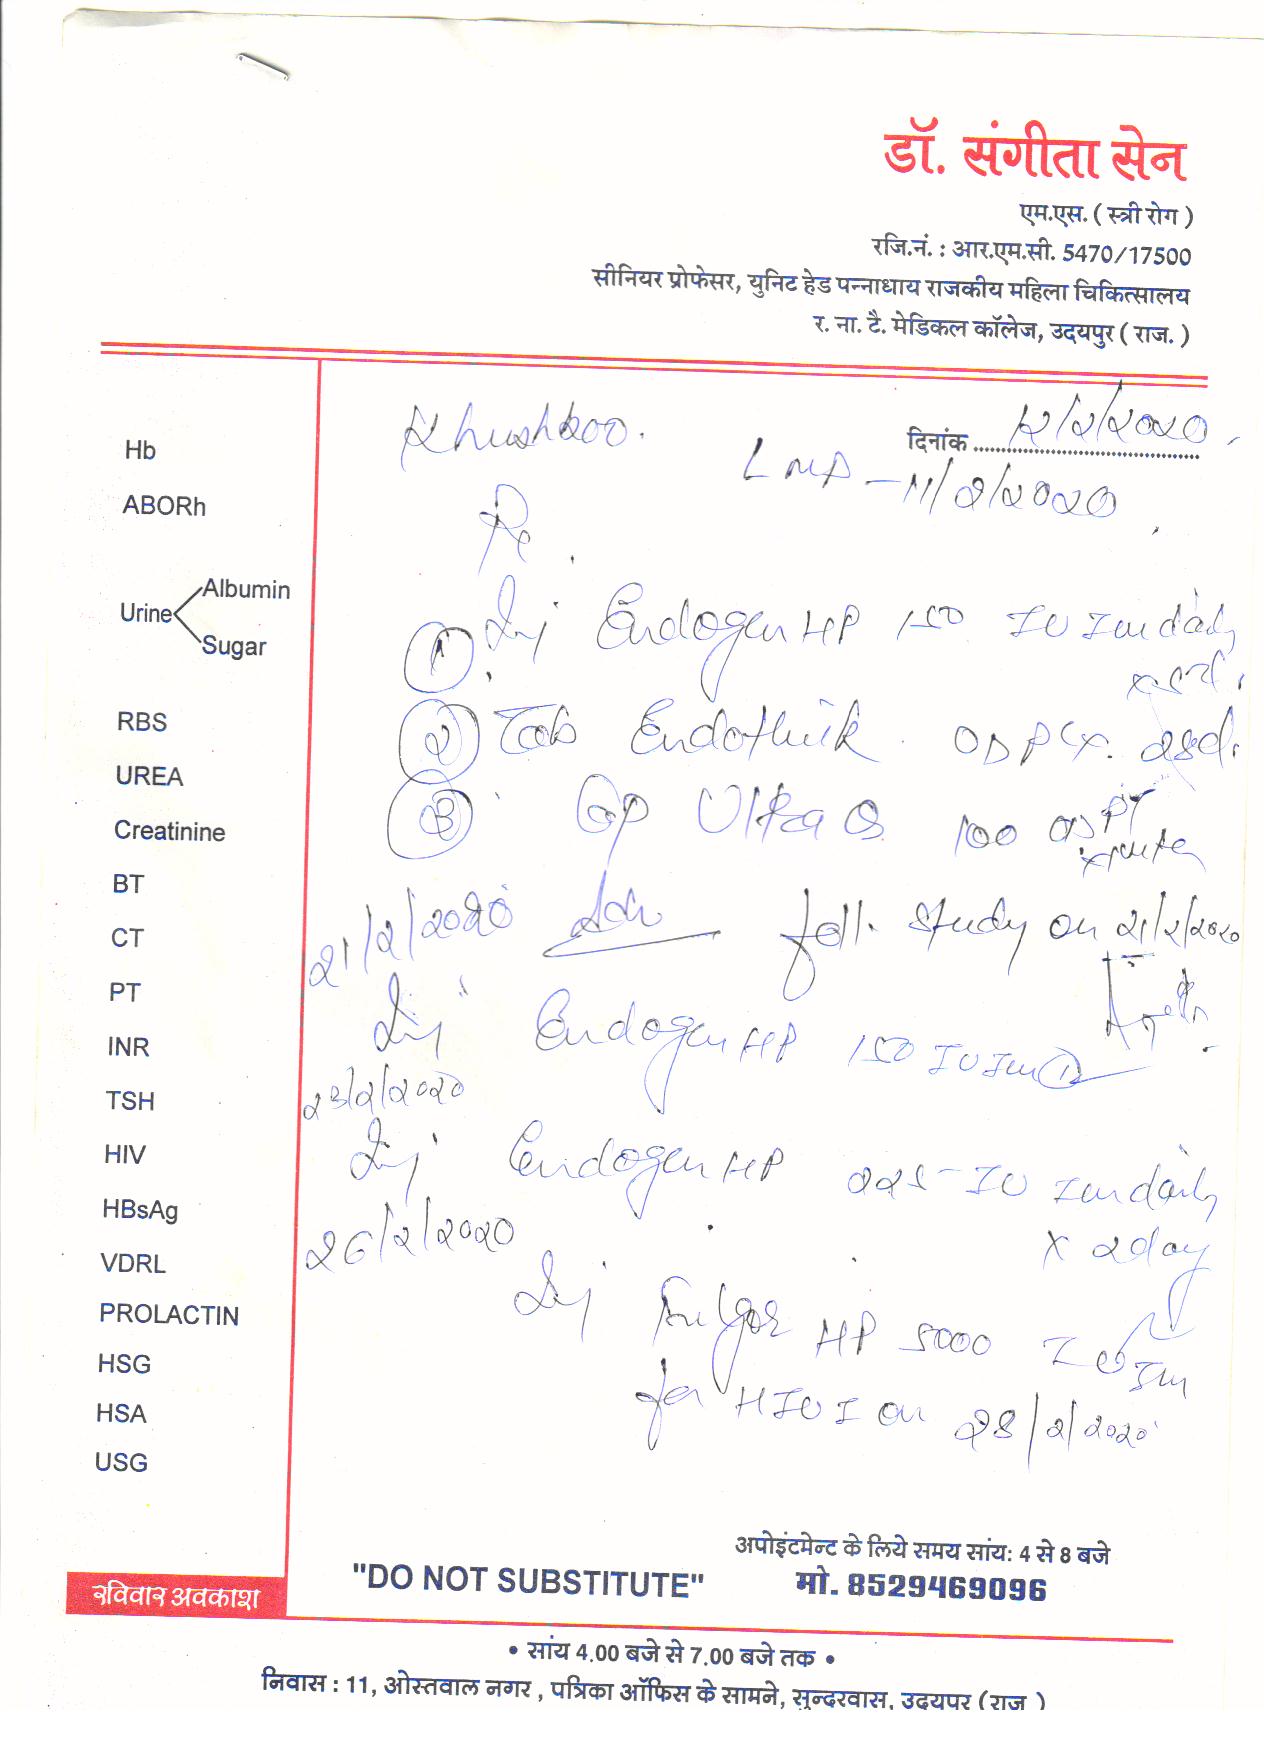 डॉ. संगीता सेन
एम.एस. ( स्त्री रोग )
रजि.नं. : आर.एम.सी. 5470/17500
सीनियर प्रोफेसर, युनिट हेड पन्नाधाय राजकीय महिला चिकित्सालय
र. ना. टै. मेडिकल कॉलेज, उदयपुर ( राज. )
Khushboo.
दिनांक 12/2/2020
LMP - 11/2/2020
Hb
ABORh
Urine
Albumin
Sugar
RBS
UREA
Creatinine
BT
CT
PT
INR
TSH
HIV
HBsAg
VDRL
PROLACTIN
HSG
HSA
USG
1 Inj Endogen HP 150 IU Im daily
2 Tab Endothik OD
3 Cap 100
21/2/2020 Adv foll. study on 21/2/2020
Inj Endogen HP 150 IU Im 1
23/2/2020
Inj Endogen HP 225 IU Im daily
x 2 day
26/2/2020
Inj HP 5000 IU Im
for HIUI on 28/2/2020
अपोइंटमेन्ट के लिये समय सांय: 4 से 8 बजे
"DO NOT SUBSTITUTE" मो. 8529469096
रविवार अवकाश
• सांय 4.00 बजे से 7.00 बजे तक •
निवास : 11, ओस्तवाल नगर , पत्रिका ऑफिस के सामने, सुन्दरवास, उदयपुर (राज )